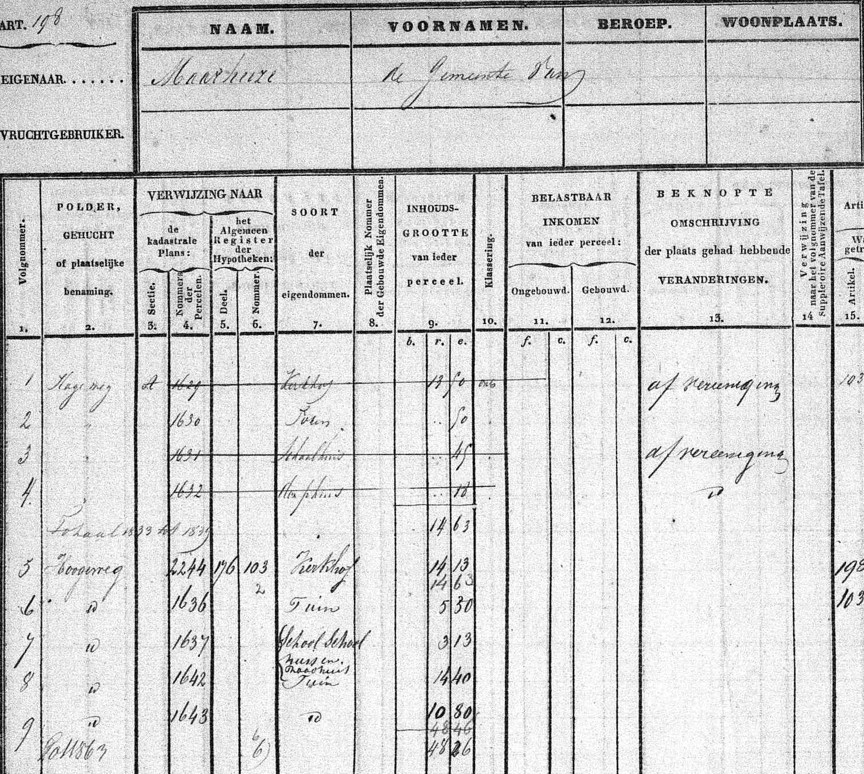 ART. 198
NAAM. VOORNAMEN. BEROEP. WOONPLAATS.
EIGENAAR....... Maarheeze de Gemeente van
VRUCHTGEBRUIKER.
Volgnommer.
POLDER, GEHUCHT of plaatselijke benaming.
VERWIJZING NAAR
de kadastrale Plans:
het Algemeen Register der Hypotheken:
Sectie. Nommers der Perceelen. Deel. Nommer.
SOORT der eigendommen.
Plaatselijk Nommer der Gebouwde Eigendommen.
INHOUDS-GROOTTE van ieder perceel.
Klassering.
BELASTBAAR INKOMEN van ieder perceel:
Ongebouwd. Gebouwd.
BEKNOPTE OMSCHRIJVING der plaats gehad hebbende VERANDERINGEN.
Verwijzing naar het volgnommer van de Suppletoire Aanwijzende Tafel.
Arti
getr
Artikel.
1. 2. 3. 4. 5. 6. 7. 8. 9. 10. 11. 12. 13. 14 15.
b. r. e. f. c. f. c.
1 Hageweg A 1629 Kerkhof 13 50 af vereeniging 103
2 " 1630 Tuin .. 50
3 " 1631 Schoolhuis .. 45 af vereeniging
4 " 1632 .. 18 "
Totaal 1833 tot 1839 14 63
5 Hoogeweg 2244 176 103 Kerkhof 14 13 198
2 14 63
6 id 1636 Tuin 5 30 103
7 id 1637 School School 3 13
huis en raadhuis
8 id 1642 Tuin 14 40
9 id 1643 id 10 80
48 46
1863 6) 48 26